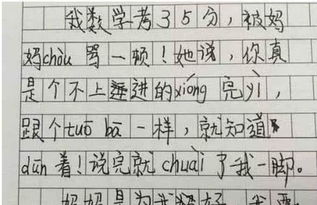 我数学考35分，被妈
妈chòu骂一顿！她说，你真
是个不上进的xiōng完yì，
跟个tuō bā一样，就知道
dūn着！说完就chuài了我一脚。
妈妈是为我好，我要